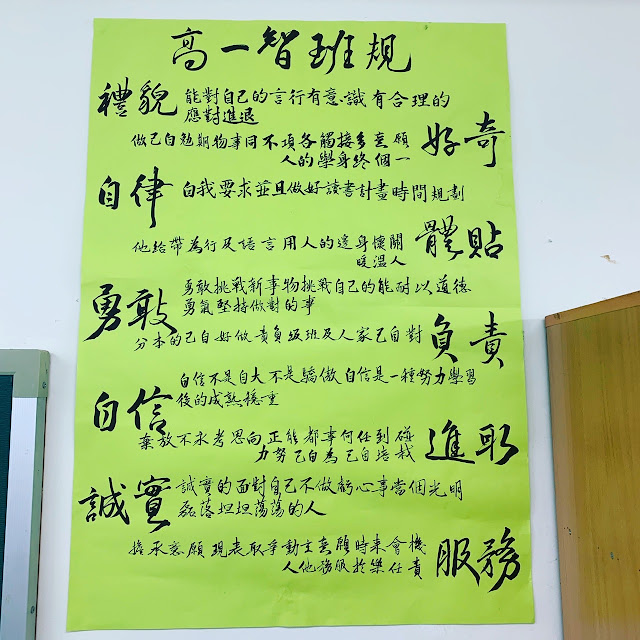 高一智班規
禮貌
能對自己的言行有意識有合理的
應對進退
好奇
願意多接觸各項不同事物期勉自己做
一個終身學的人
自律
自我要求並且做好讀書計畫時間規劃
體貼
關懷身邊的人用言語及行為帶給他
人溫暖
勇敢
勇敢挑戰新事物挑戰自己的能耐以道德
勇氣堅持做對的事
負責
對自己家人及班級負責做好自己的本分
自信
自信不是自大不是驕傲自信是一種努力學習
後的成熟穩重
進取
碰到任何事都能正向思考永不放棄
栽培自己為自己努力
誠實
誠實的面對自己不做虧心事當個光明
磊落坦坦蕩蕩的人
服務
機會來時願意主動爭取表現願意承擔
責任樂於服務他人